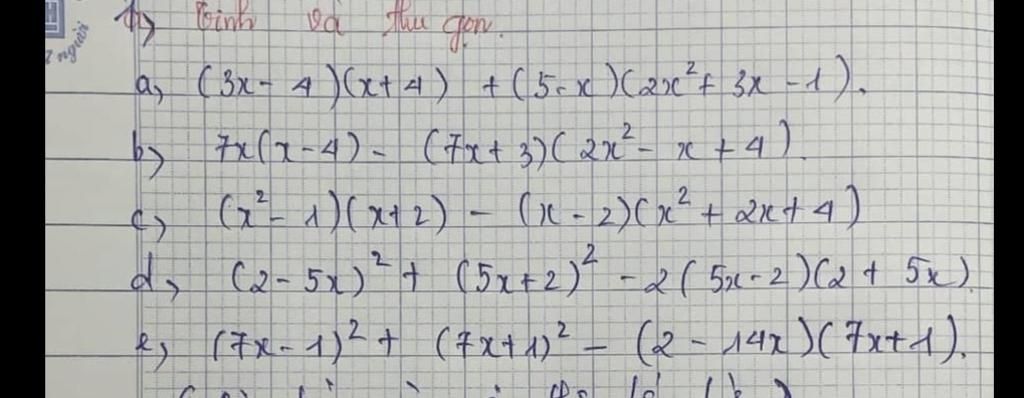 người
Tính và thu gọn.
a, (3x - 4)(x+4) + (5-x)(2x² + 3x - 1).
b, 7x(x-4) - (7x+3)(2x² - x + 4).
c, (x² - 1)(x+2) - (x - 2)(x² + 2x + 4)
d, (2 - 5x)² + (5x+2)² - 2(5x-2)(2 + 5x).
e, (7x - 1)² + (7x+1)² - (2 - 14x)(7x+1).